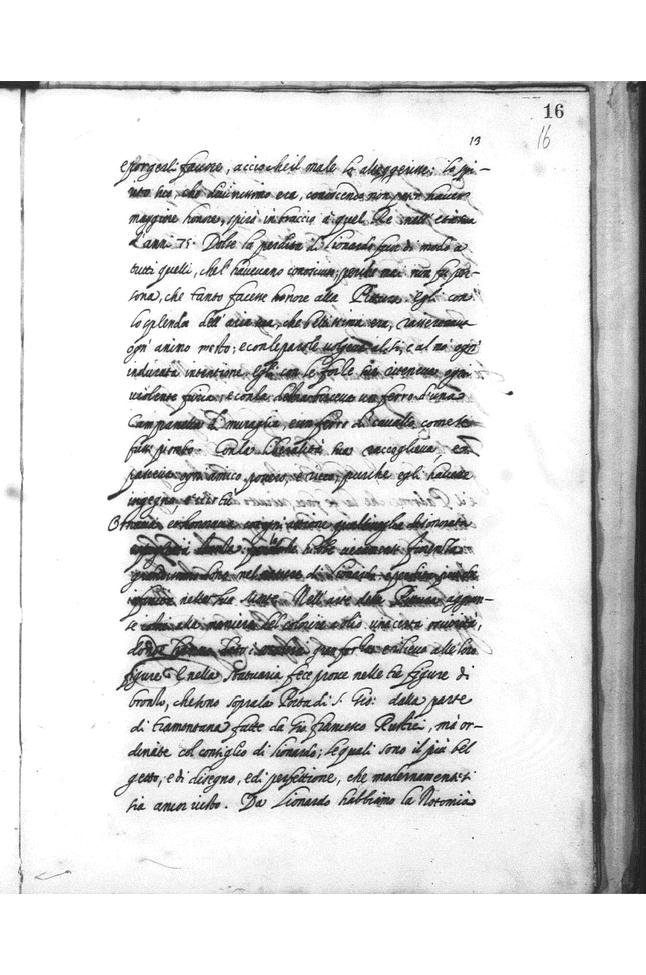 16
13
16
e porgerli favore, acciocche il male lo alleggerisse: lo spi-
rito suo, che divinissimo era, conoscendo non poter havere
maggiore honore, spirò in braccio a quel Re nell'
d'anni 75. Dolse la perdita di Lionardo fuor di modo a
tutti quelli, che l'havevano conosciuto, perche mai non fu per-
sona, che tanto facesse honore alla Pittura. Egli con
lo splendor dell'aria sua, che bellissima era, rasserenava
ogni animo mesto; e con le parole volgeva al sì, e al no ogni
indurata intentione. Egli con le forze sue riteneva ogni
violente furia; e con la destra torceva un ferro d'una
Campanella di muraglia, e un ferro di cavallo come se
fusse piombo. Con la liberalità sua raccoglieva, e
pasceva ogni amico, povero, e ricco, purche egli havesse
ingegno, e virtù.
Ornava, et honorava con ogni attione qualsivoglia dishonorata
e spogliata stanza: hebbe veramente Fiorenza
grandissimo dono nel nascere di Lionardo, e perdita più che
infinita nella sua morte. Nell'arte della Pittura aggiun-
se alla maniera del colorire a olio una certa oscurità,
donde hanno dato i gran forza e rilievo alle loro
figure. E nella Statuaria fece prove nelle tre figure di
bronzo, che sono sopra la Porta di S. Gio: dalla parte
di tramontana fatte da Gio: Francesco Rustici, mà or-
denate col consiglio di Lionardo; le quali sono il più bel
getto, e di disegno, e di perfettione, che modernamente si
sia ancor visto. Da Lionardo habbiamo la Notomia